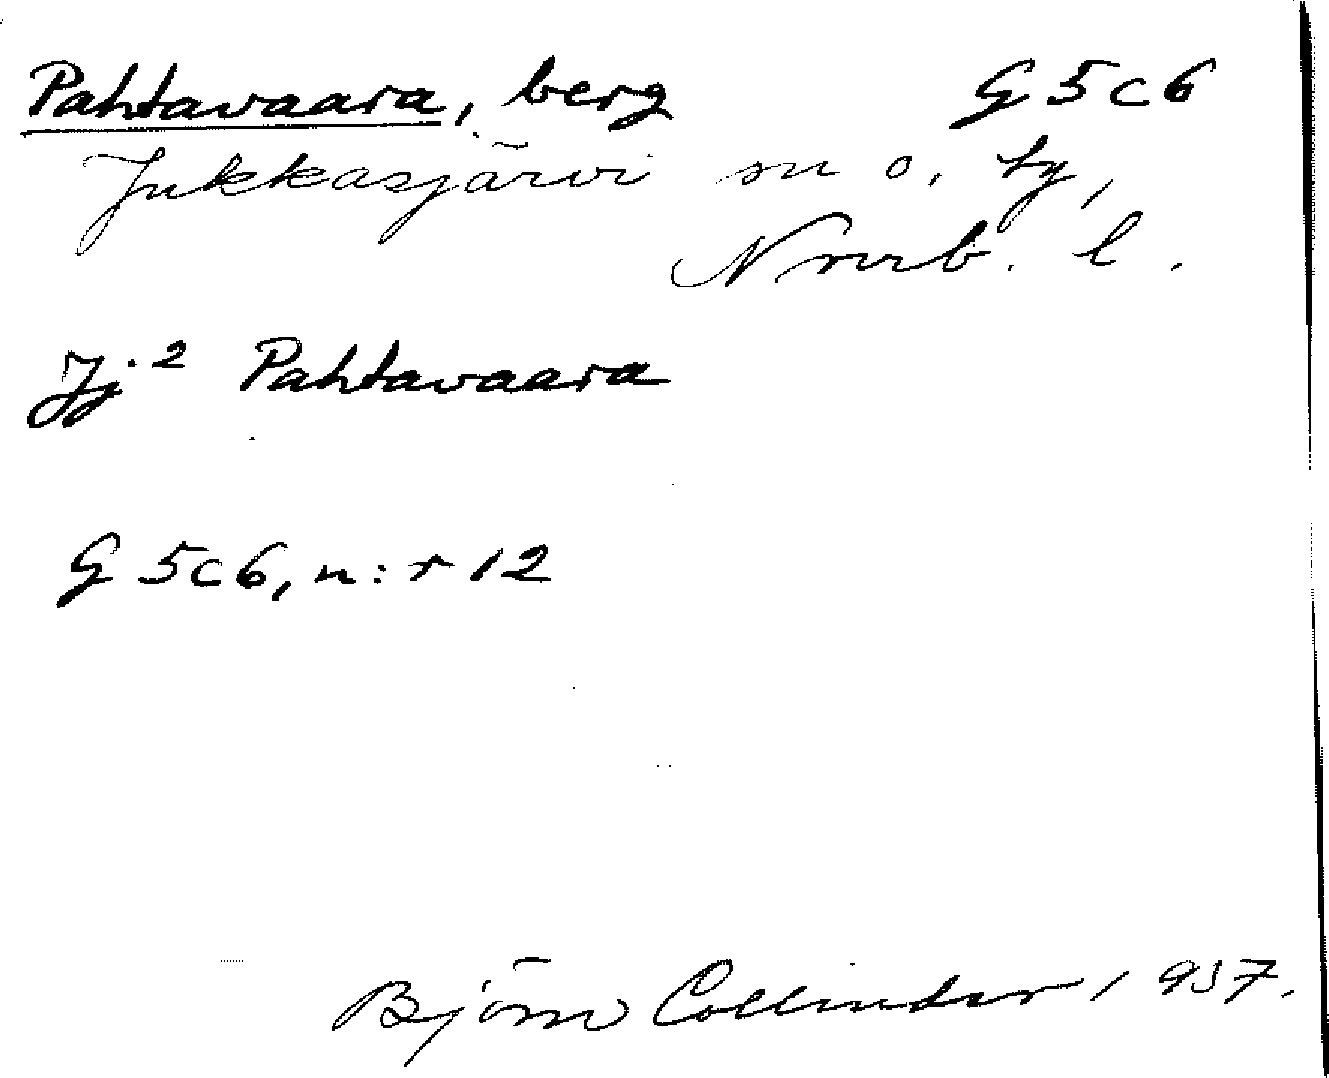 Pahtavaara, berg G5c6
Jukkasjärvi sn o. ty,
Norrb. l.
Jj.² Pahtavaara
G5c6, n:r 12
Björn Collinder 1937.